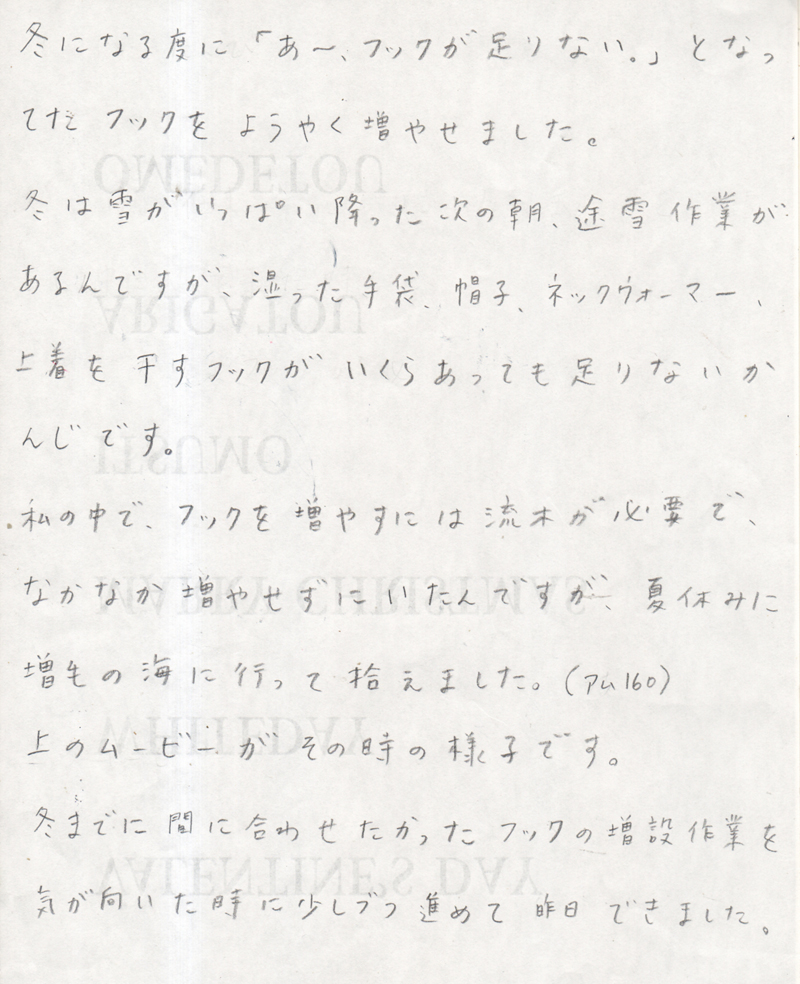 冬になる度に「あ〜、フックが足りない。」となっ
てたフックをようやく増やせました。
冬は雪がいっぱい降った次の朝、途雪作業が
あるんですが、湿った手袋、帽子、ネックウォーマー、
上着を干すフックがいくらあっても足りないか
んじです。
私の中で、フックを増やすには流木が必要で、
なかなか増やせずにいたんですが、夏休みに
増毛の海に行って拾えました。(アム160)
上のムービーがその時の様子です。
冬までに間に合わせたかったフックの増設作業を
気が向いた時に少しづつ進めて昨日できました。
OMEDETOU
ARIGATOU
ITSUMO
MERRY CHRISTMAS
WHITEDAY
VALENTINE'S DAY